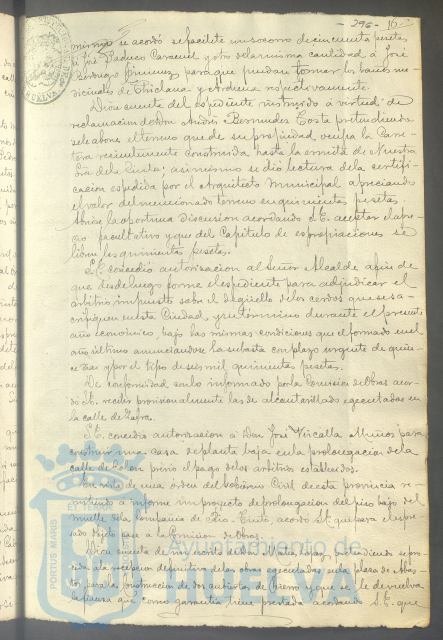 - 296 - 16 -
mismo se acordó se facilite un socorro de cincuenta pesetas
á José Pacheco Caramel y otro de la misma cantidad á José
Verdugo Gimenez para que puedan tomar los baños me-
dicinales de Chiclana y Ardena respectivamente.
Dióse cuenta del espediente instruido á virtud de
reclamacion de Don Andrés Bermudez Costa pretendiendo
se le abone el terreno que de su propiedad, ocupa la Carre-
tera recientemente construida hasta la ermita de Nuestra
Sra. de la Cinta; asimismo se dió lectura de la certifi-
cacion espedida por el Arquitecto Municipal apreciando
el valor del mencionado terreno en quinientas pesetas.
Abrióse la oportuna discusion acordando S.E. aceptar el apre-
cio facultativo y que del Capitulo de espropiaciones se
libren las quinientas pesetas.
S.E. concedió autorizacion al Señor Alcalde á fin de
que desde luego forme el espediente para adjudicar el
arbitrio impuesto sobre el degüello de los cerdos que se sa-
crifiquen en esta Ciudad, y su término durante el presente
año económico, bajo las mismas condiciones que el formado en el
año último anunciandose la subasta con plazo urgente de quin-
ce dias y por el tipo de seis mil quinientas pesetas.
De conformidad con lo informado por la Comision de Obras acor-
dó S.E. recibir provisionalmente las de alcantarillado egecutadas en
la calle de Zafra.
S.E. concedió autorizacion á Don José Vizcalla Muñoz para
construir una casa de planta baja en la prolongacion de la
calle de Colon previo el pago de los arbitrios establecidos.
En vista de una orden del Gobierno Civil de esta provincia re-
mitiendo á informe un proyecto de prolongacion del piso bajo del
muelle de la Compañia de Rio-Tinto, acordó S.E. que para el espre-
sado objeto pase á la Comision de Obras.
Dióse cuenta de un escrito de Don Matias Lopez, pretendiendo se pro-
ceda á la recepcion definitiva de las obras egecutadas en la plaza de Abas-
tos para la construccion de dos cubiertas de hierro y que se le devuelva
la fianza que como garantia tiene prestada acordando S.E. que
PORTUS MARIS ET TERRÆ
Ayuntamiento de
HUELVA